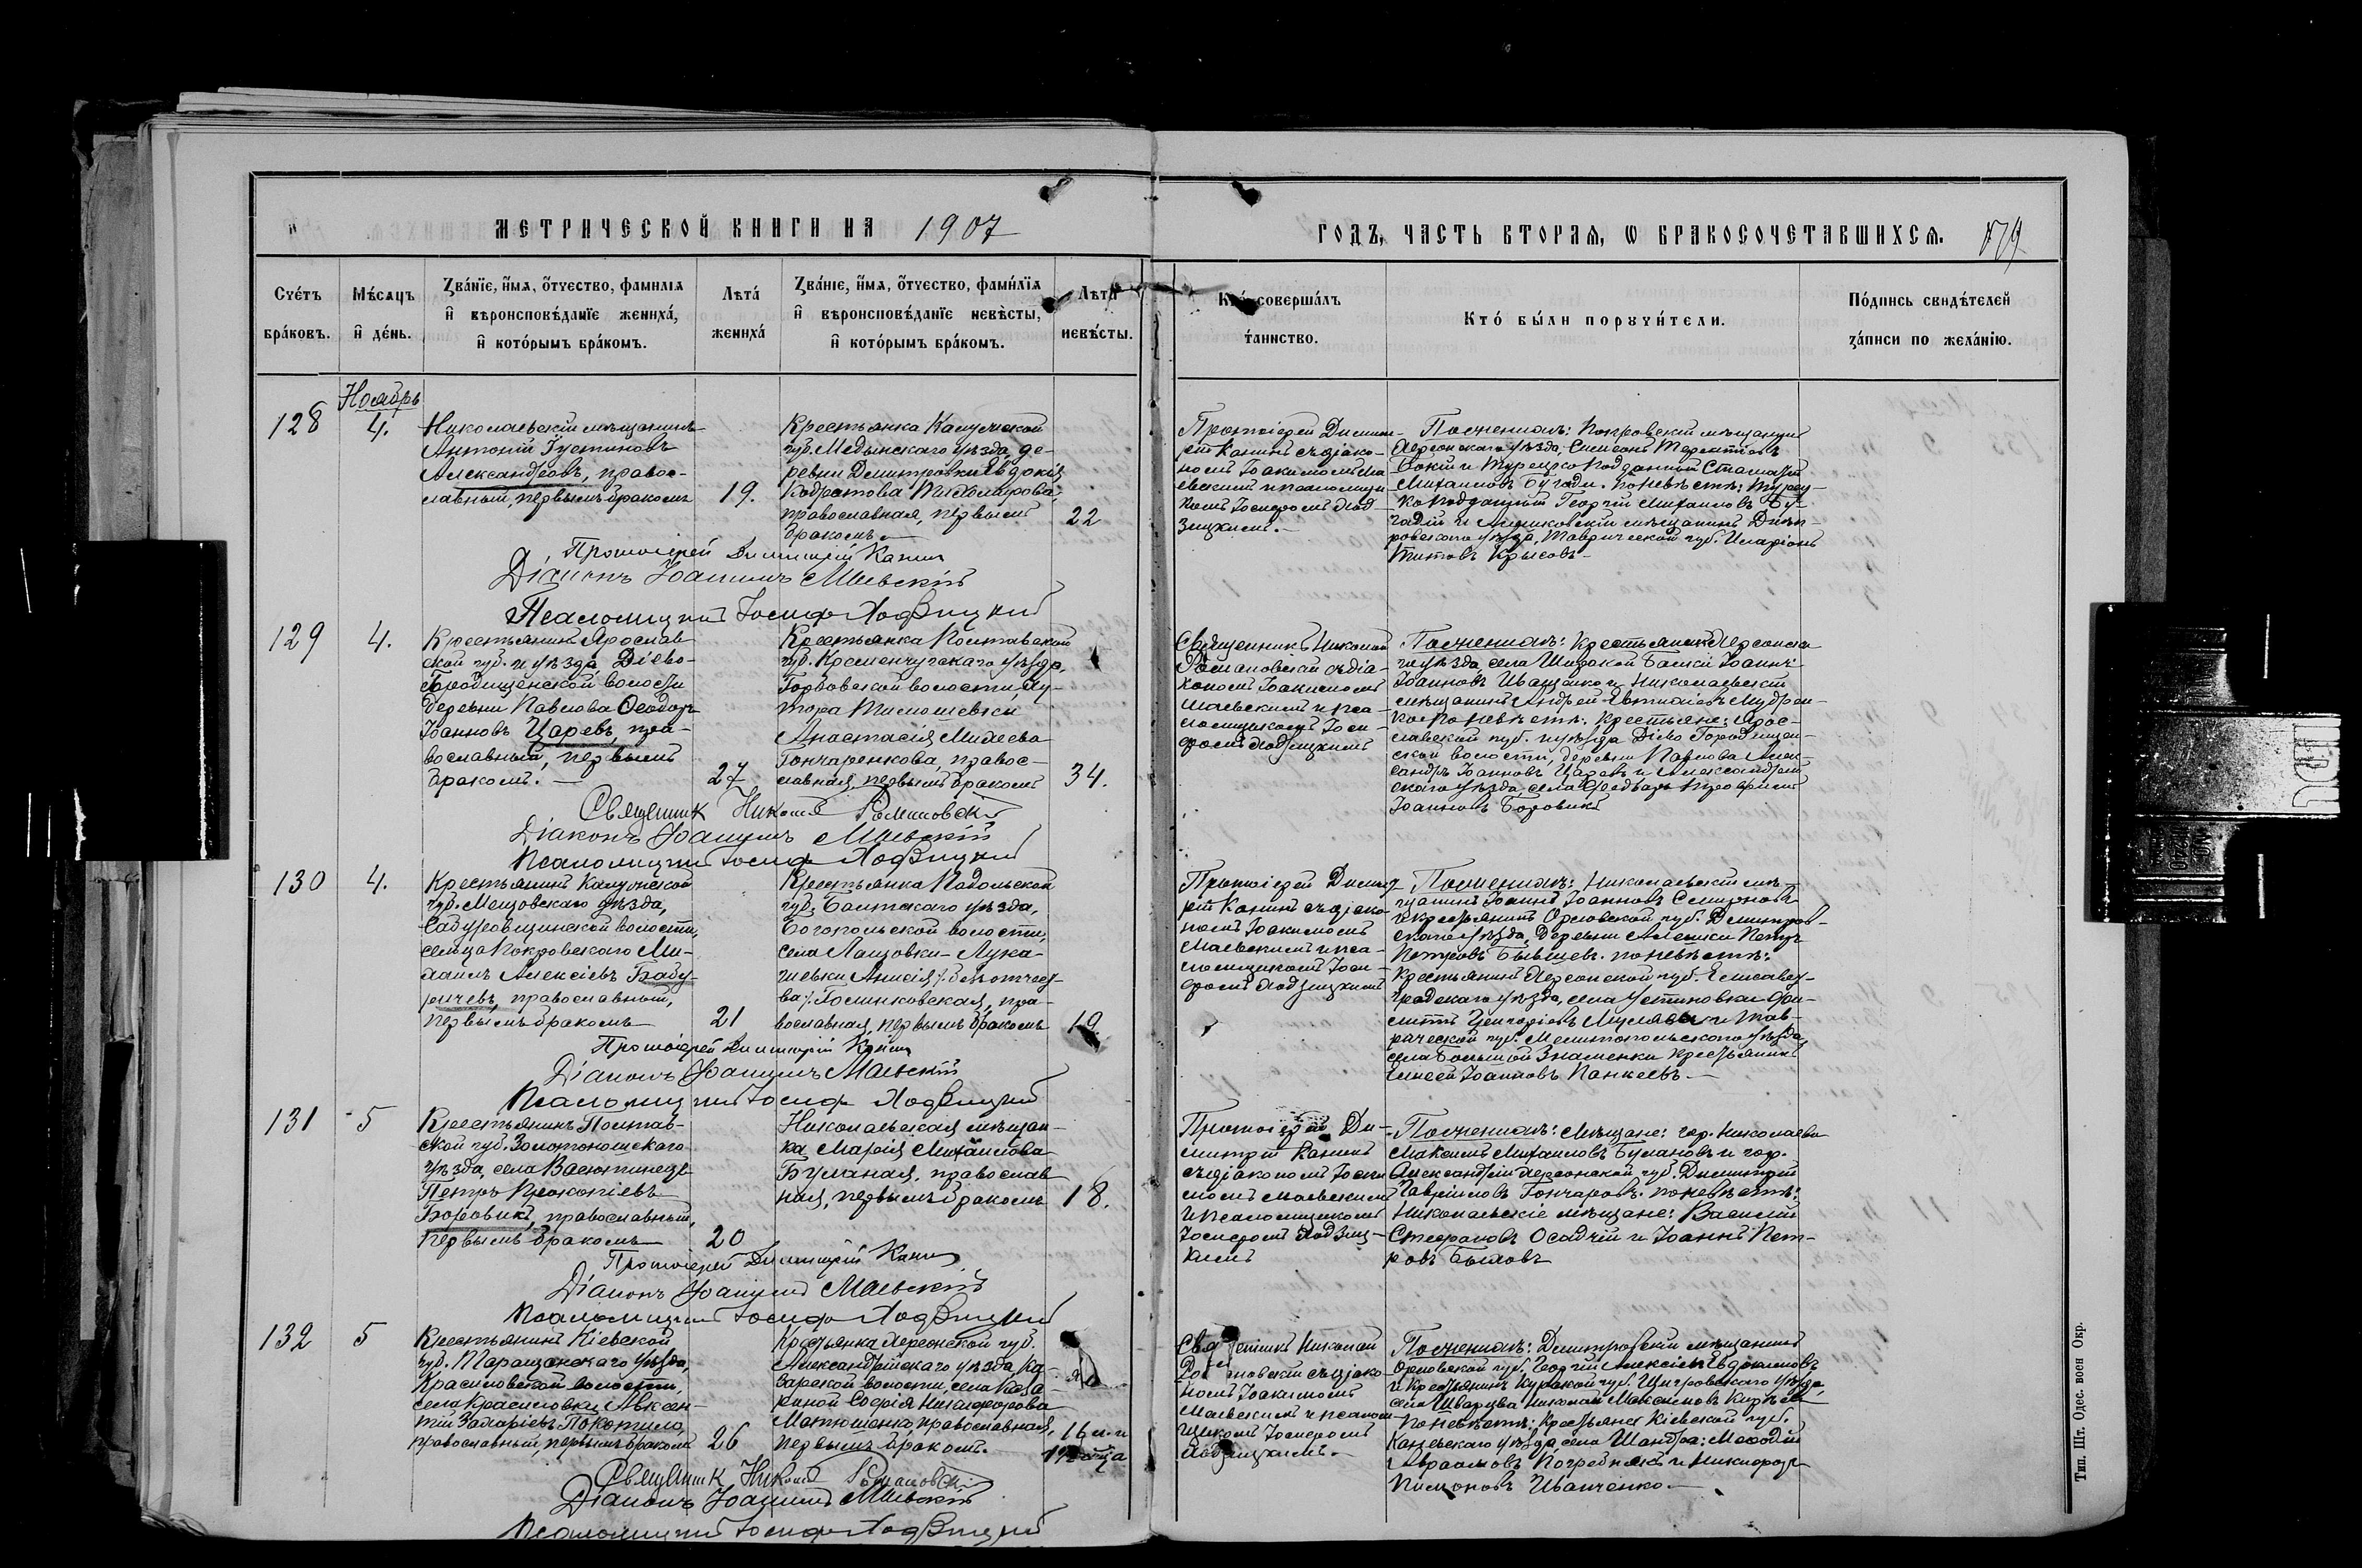 МЕТРИЧЕСКОЙ КНИГИ НА 1907
ГОДЪ, ЧАСТЬ ВТОРАЯ, Ѡ БРАКОСОЧЕТАВШИХСЯ.
Счетъ браковъ.
Мѣсяцъ и день.
Званіе, имя, отчество, фамилія
и вѣроисповѣданіе жениха,
и которымъ бракомъ.
Лѣта
жениха
Званіе, имя, отчество, фамилія
и вѣроисповѣданіе невѣсты,
и которымъ бракомъ.
Лѣта
невѣсты.
Кто совершалъ
таинство.
Кто были поручители.
Подпись свидѣтелей
записи по желанію.
Ноябрь
128
4.
Николаевскій мѣщанинъ
Антоній Іустиновъ
Александровъ, правос-
лавный, первымъ бракомъ
19.
Крестьянка Калужской
губ. Медынскаго уѣзда, де-
ревни Дмитровки Евдокія
Кодратова Тихомирова,
православная, первымъ
бракомъ
22
Протоіерей Димит-
рій Канинъ съ діако-
номъ Іоакимомъ Ма
евскимъ и псаломщи
комъ Іосифомъ Ход-
зицкимъ.
По женихѣ: Покровскій мѣщанинъ
Херсонскаго уѣзда, Симеонъ Терентіевъ
и Турецко подданный
Михаиловъ По невѣстѣ: Турец-
ко подданный Георгій Михаиловъ
и мѣщанинъ Днѣп-
ровскаго уѣзда, Таврической губ. Иларіонъ
Титовъ Крысовъ
Протоіерей Димитрій Канинъ
Діаконъ Іоакимъ Маевскій
Псаломщикъ Іосифъ Ходзицкій
129
4.
Крестьянинъ Ярослав
ской губ. и уѣзда Діево-
Городищенской волости
деревни Павлова Ѳеодоръ
Іоанновъ Царевъ, пра-
вославный, первымъ
бракомъ.
27
Крестьянка Полтавской
губ. Кременчугскаго уѣзда,
волости, Ху-
тора Тимошевки
Анастасія Михеева
Гончаренкова, правос-
лавная, первымъ бракомъ
34.
Священникъ Николай
Романовскій съ діа-
кономъ Іоакимомъ
Маевскимъ и пса-
ломщикомъ Іоси-
фомъ Ходзицкимъ
По женихѣ: Крестьянинъ Херсонска
го уѣзда, села Широкой Балки Іоаннъ
Іоанновъ Иващенко и Николаевскій
мѣщанинъ Андрей Евтихіевъ
По невѣстѣ: Крестьяне: Ярос-
лавской губ. и уѣзда Діево Городищен-
ской волости, деревни Павлова Алек-
сандръ Іоанновъ Царевъ и Александрій-
скаго уѣзда, села Трофимъ
Іоанновъ Боровикъ
Священникъ Николай Романовскій
Діаконъ Іоакимъ Маевскій
Псаломщикъ Іосифъ Ходзицкій
130
4.
Крестьянинъ Калужской
губ. Мещовскаго уѣзда,
волости,
сельца Покровскаго Ми-
хаилъ Алексіевъ Бабу-
ричевъ, православный,
первымъ бракомъ
21
Крестьянка Подольской
губ. Балтскаго уѣзда,
Богопольской волости,
села Лащовки-Лука-
шевки Анисія /безъ отчест-
ва/ Голинковская, пра-
вославная, первымъ бракомъ
19.
Протоіерей Димит-
рій Канинъ съ діако-
номъ Іоакимомъ
Маевскимъ и пса-
ломщикомъ Іоси-
фомъ Ходзицкимъ
По женихѣ: Николаевскій мѣ-
щанинъ Іоаннъ Іоанновъ Смирновъ
и крестьянинъ Орловской губ. Дмитров-
скаго уѣзда, деревни Алешки Петръ
Петровъ По невѣстѣ:
Крестьянинъ Херсонской губ. Елисавет-
градскаго уѣзда, села Устиновки
Григоріевъ и Тав-
рической губ. Мелитопольскаго уѣзда,
села Большой Знаменки крестьянинъ
Елисей Іоанновъ Панкеевъ.
Протоіерей Димитрій Канинъ
Діаконъ Іоакимъ Маевскій
Псаломщикъ Іосифъ Ходзицкій
131
5
Крестьянинъ Полтав-
ской губ. Золотоношскаго
уѣзда, села Васютинецъ
Петръ Прокопіевъ
Боровикъ, православный,
первымъ бракомъ
20
Николаевская мѣщан-
ка Марія Михаилова
Буланая, православ
ная, первымъ бракомъ
18.
Протоіерей Ди-
митрій Канинъ
съ діакономъ Іоаки
момъ Маевскимъ
и псаломщикомъ
Іосифомъ Ходзиц-
кимъ
По женихѣ: Мѣщане: гор. Николаева
Максимъ Михаиловъ Булановъ и гор.
Александріи Херсонской губ. Димитрій
Гавріиловъ Гончаровъ. По невѣстѣ:
Николаевскіе мѣщане: Василій
Стефановъ Осадчій и Іоаннъ Пет-
ровъ Быловъ
Протоіерей Димитрій Канинъ
Діаконъ Іоакимъ Маевскій
Псаломщикъ Іосифъ Ходзицкій
132
5
Крестьянинъ Кіевской
губ. Таращанскаго уѣзда,
Красиловской волости,
села Красиловки Авксен-
тій Захаріевъ Покотило,
православный, первымъ бракомъ
26
Крестьянка Херсонской губ.
Александрійскаго уѣзда,
волости, села
Софія Никифорова
Матюшенко, православная,
первымъ бракомъ.
16 л. и
Священникъ Николай
Романовскій съ діако
номъ Іоакимомъ
Маевскимъ и псалом
щикомъ Іосифомъ
Ходзицкимъ.
По женихѣ: Дмитровскій мѣщанинъ
Орловской губ. Георгій Алексіевъ Евдокимовъ
и крестьянинъ Курской губ. Щигровскаго уѣзда,
села Николай Максимовъ
По невѣстѣ: Крестьяне Кіевской губ.
Каневскаго уѣзда, села Шандра: Меѳодій
Авраамовъ Погребнякъ и Никифоръ
Пимоновъ Иванченко.
Священникъ Николай Романовскій
Діаконъ Іоакимъ Маевскій
Псаломщикъ Іосифъ Ходзицкій
Тип. Шт. Одес. воен Окр.